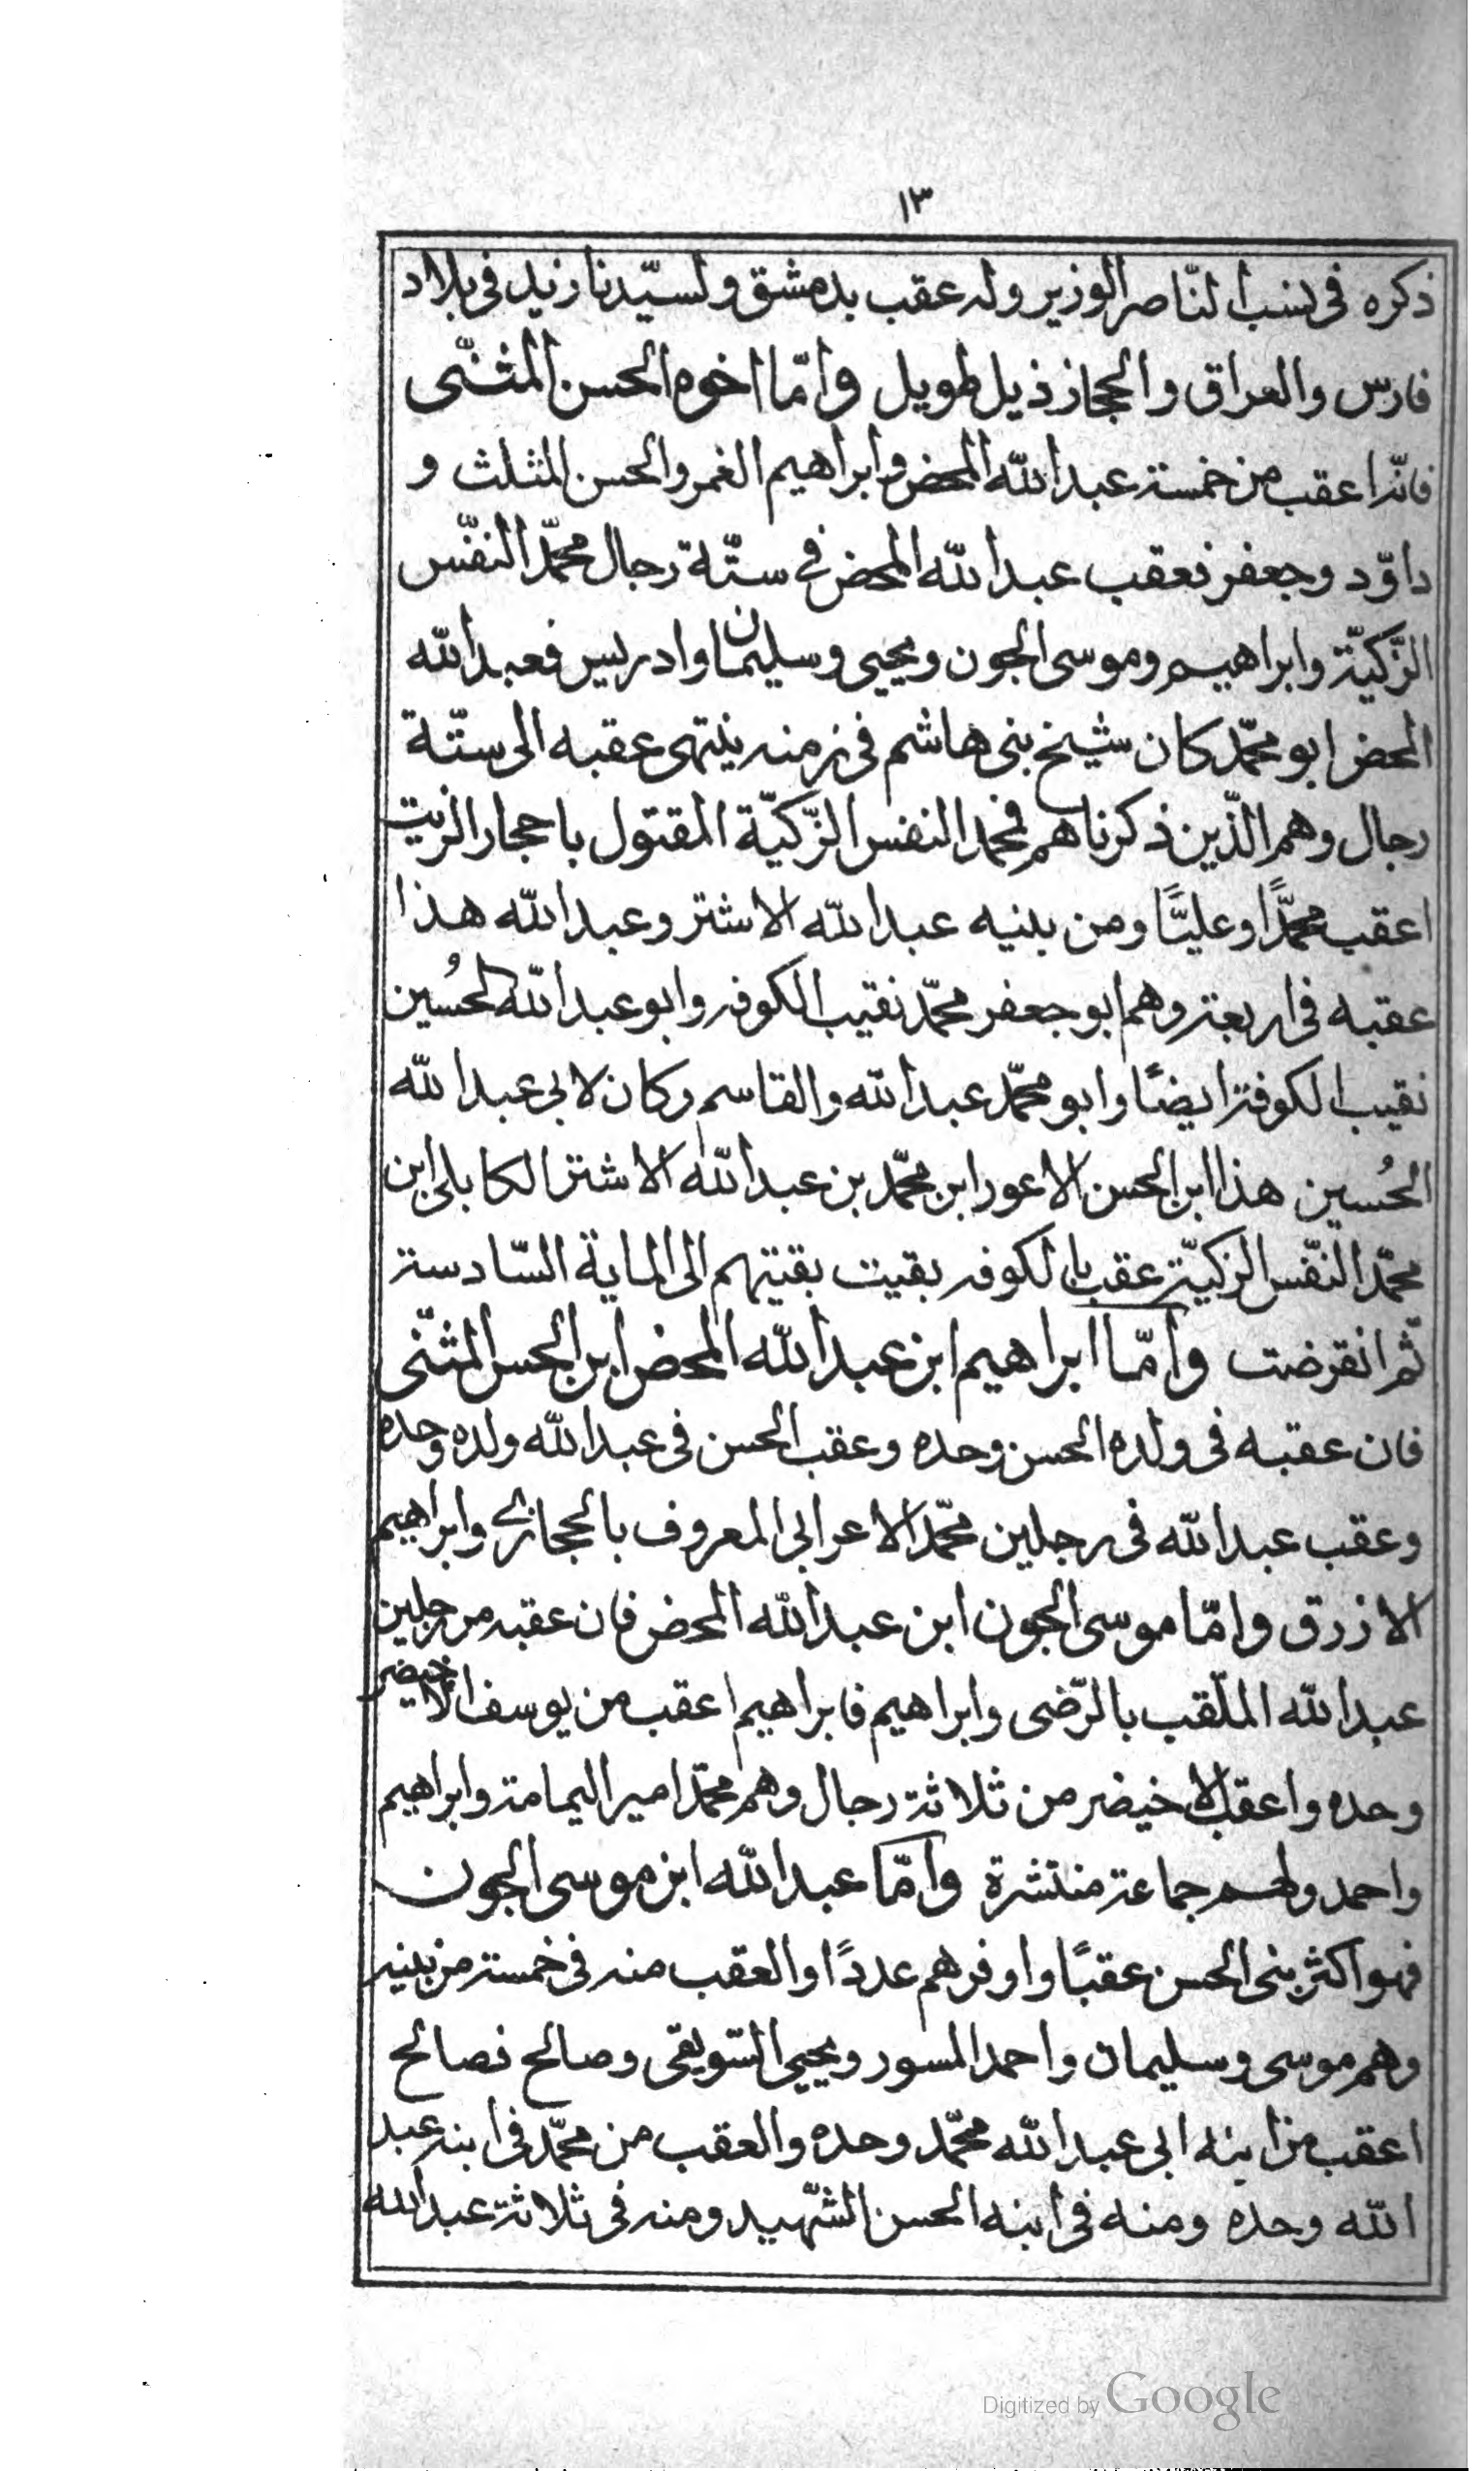 ١٣
ذكره فى نسب الناصر الوزير وله عقب بدمشق ولسيّدنا زيد فى بلاد
فارس والعراق والحجاز ذيل طويل وامّا اخوه الحسن المثنّى
فانّه اعقب من خمسة عبد الله المحض وابراهيم الغمر والحسن المثلث و
داوّد وجعفر فعقب عبد الله المحض فى ستّة رجال محمّد النفّس
الزّكيّة وابراهيم وموسى الجون ويحيى وسليمان وادريس فعبد الله
المحض ابو محمّد كان شيخ بنى هاشم فى زمنه ينتهى عقبه الى ستّة
رجال وهم الذّين ذكرناهم فمحمد النفس الزّكيّة المقتول باحجار الزيت
اعقب محمّدًا وعليًّا ومن بنيه عبد الله الاشتر وعبد الله هذا
عقبه فى اربعة وهم ابو جعفر محمّد نقيب الكوفه وابو عبد الله الحُسين
نقيب الكوفة ايضًا وابو محمّد عبد الله والقاسم وكان لابى عبد الله
الحُسين هذا ابن الحسن الاعور ابن محمّد بن عبد الله الاشتر الكابلى ابن
محمّد النّفس الزكيّة عقب بالكوفه بقيت بقيتهم الى الماية السّادسة
ثّم انقرضت وامّا ابراهيم ابن عبد الله المحض ابن الحسن المثنّى
فان عقبه فى ولده الحسن وحده وعقب الحسن فى عبد الله ولده وحده
وعقب عبد الله فى رجلين محمّد الاعرابى المعروف بالحجازى وابراهيم
الازرق وامّا موسى الجون ابن عبد الله المحض فان عقبه من رجلين
عبد الله الملّقب بالرّضى وابراهيم فابراهيم اعقب من يوسف الاخيضر
وحده واعقب الاخيضر من ثلاثة رجال وهم محمّد امير اليمامة وابراهيم
واحمد ولهم جماعة منتشرة وامّا عبد الله ابن موسى الجون
فهو اكثر بنى الحسن عقبًا واوفرهم عددًا والعقب منه فى خمسة من بنيه
وهم موسى وسليمان واحمد المسور ويحيى السّويقى وصالح فصالح
اعقب من ابنه ابى عبد الله محمّد وحده والعقب من محمّد فى ابنه عبد
الله وحده ومنه فى ابنه الحسن الشّهيد ومنه فى ثلاثة عبد الله
Digitized by Google